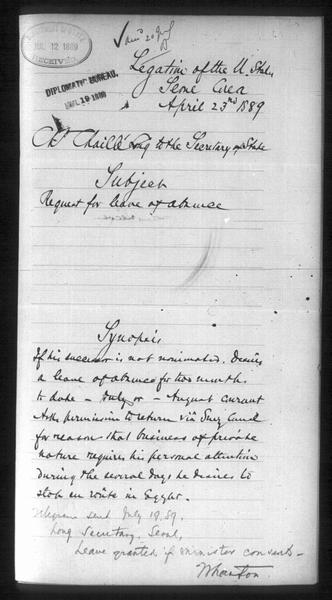 JUL 12 1889
RECEIVED
DIPLOMATIC BUREAU.
Legation of the U. States
Seoul Corea
April 23rd 1889
Chaillé Long to the Secretary of State
Subject
Request for leave of absence
Synopsis
If his successor is not nominated. Desires
a leave of absence for two months
to date - July or - August current
Asks permission to return via Suez Canal
for reason that business of private
nature requires his personal attention
during the several days he desires to
stop en route in Egypt.
Telegram sent July 19. 89.
Long Secretary, Seoul,
Leave granted if minister consents -
Wharton